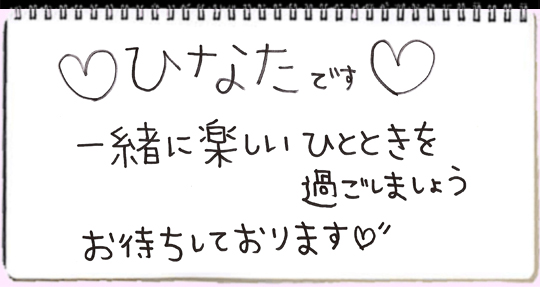 ♡ひなたです♡
一緒に楽しいひとときを
過ごしましょう
お待ちしております♡〃